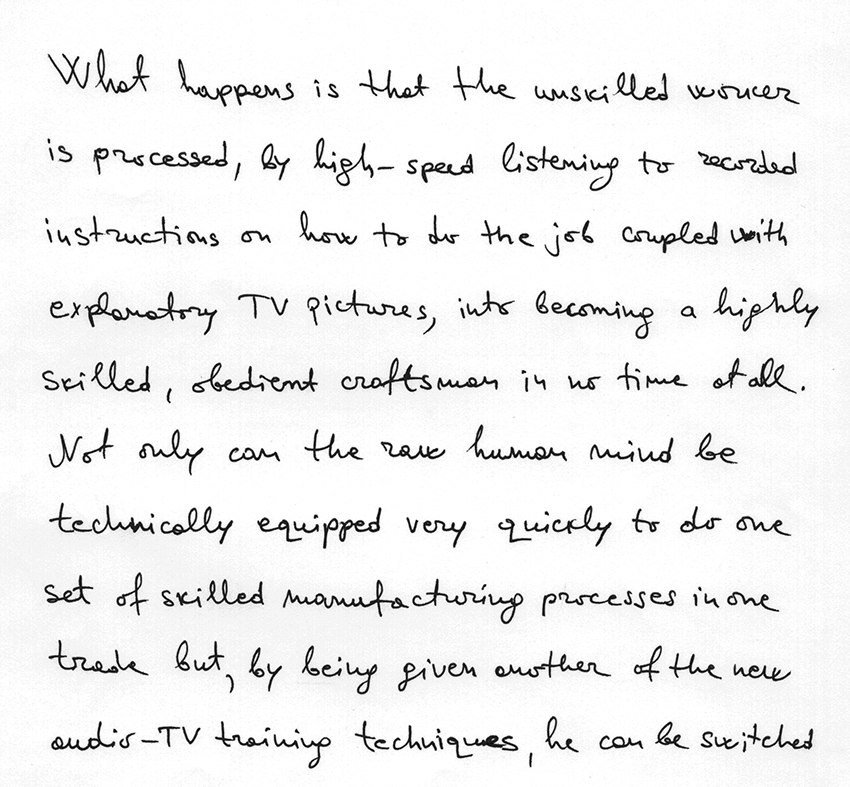 What happens is that the unskilled worker
is processed, by high-speed listening to recorded
instructions on how to do the job coupled with
explanatory TV pictures, into becoming a highly
skilled, obedient craftsman in no time at all.
Not only can the raw human mind be
technically equipped very quickly to do one
set of skilled manufacturing processes in one
trade but, by being given another of the new
audio-TV training techniques, he can be switched